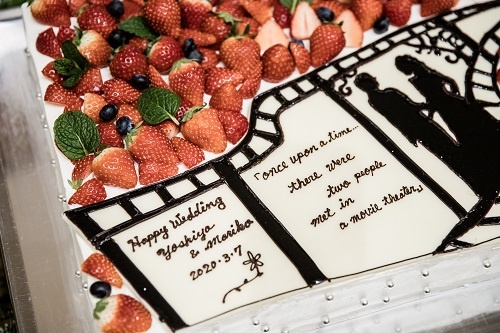 Happy Wedding
Yoshiya
& Moriko
2020.3.7
「once upon a time...
there were
two people
met in
a movie theater」